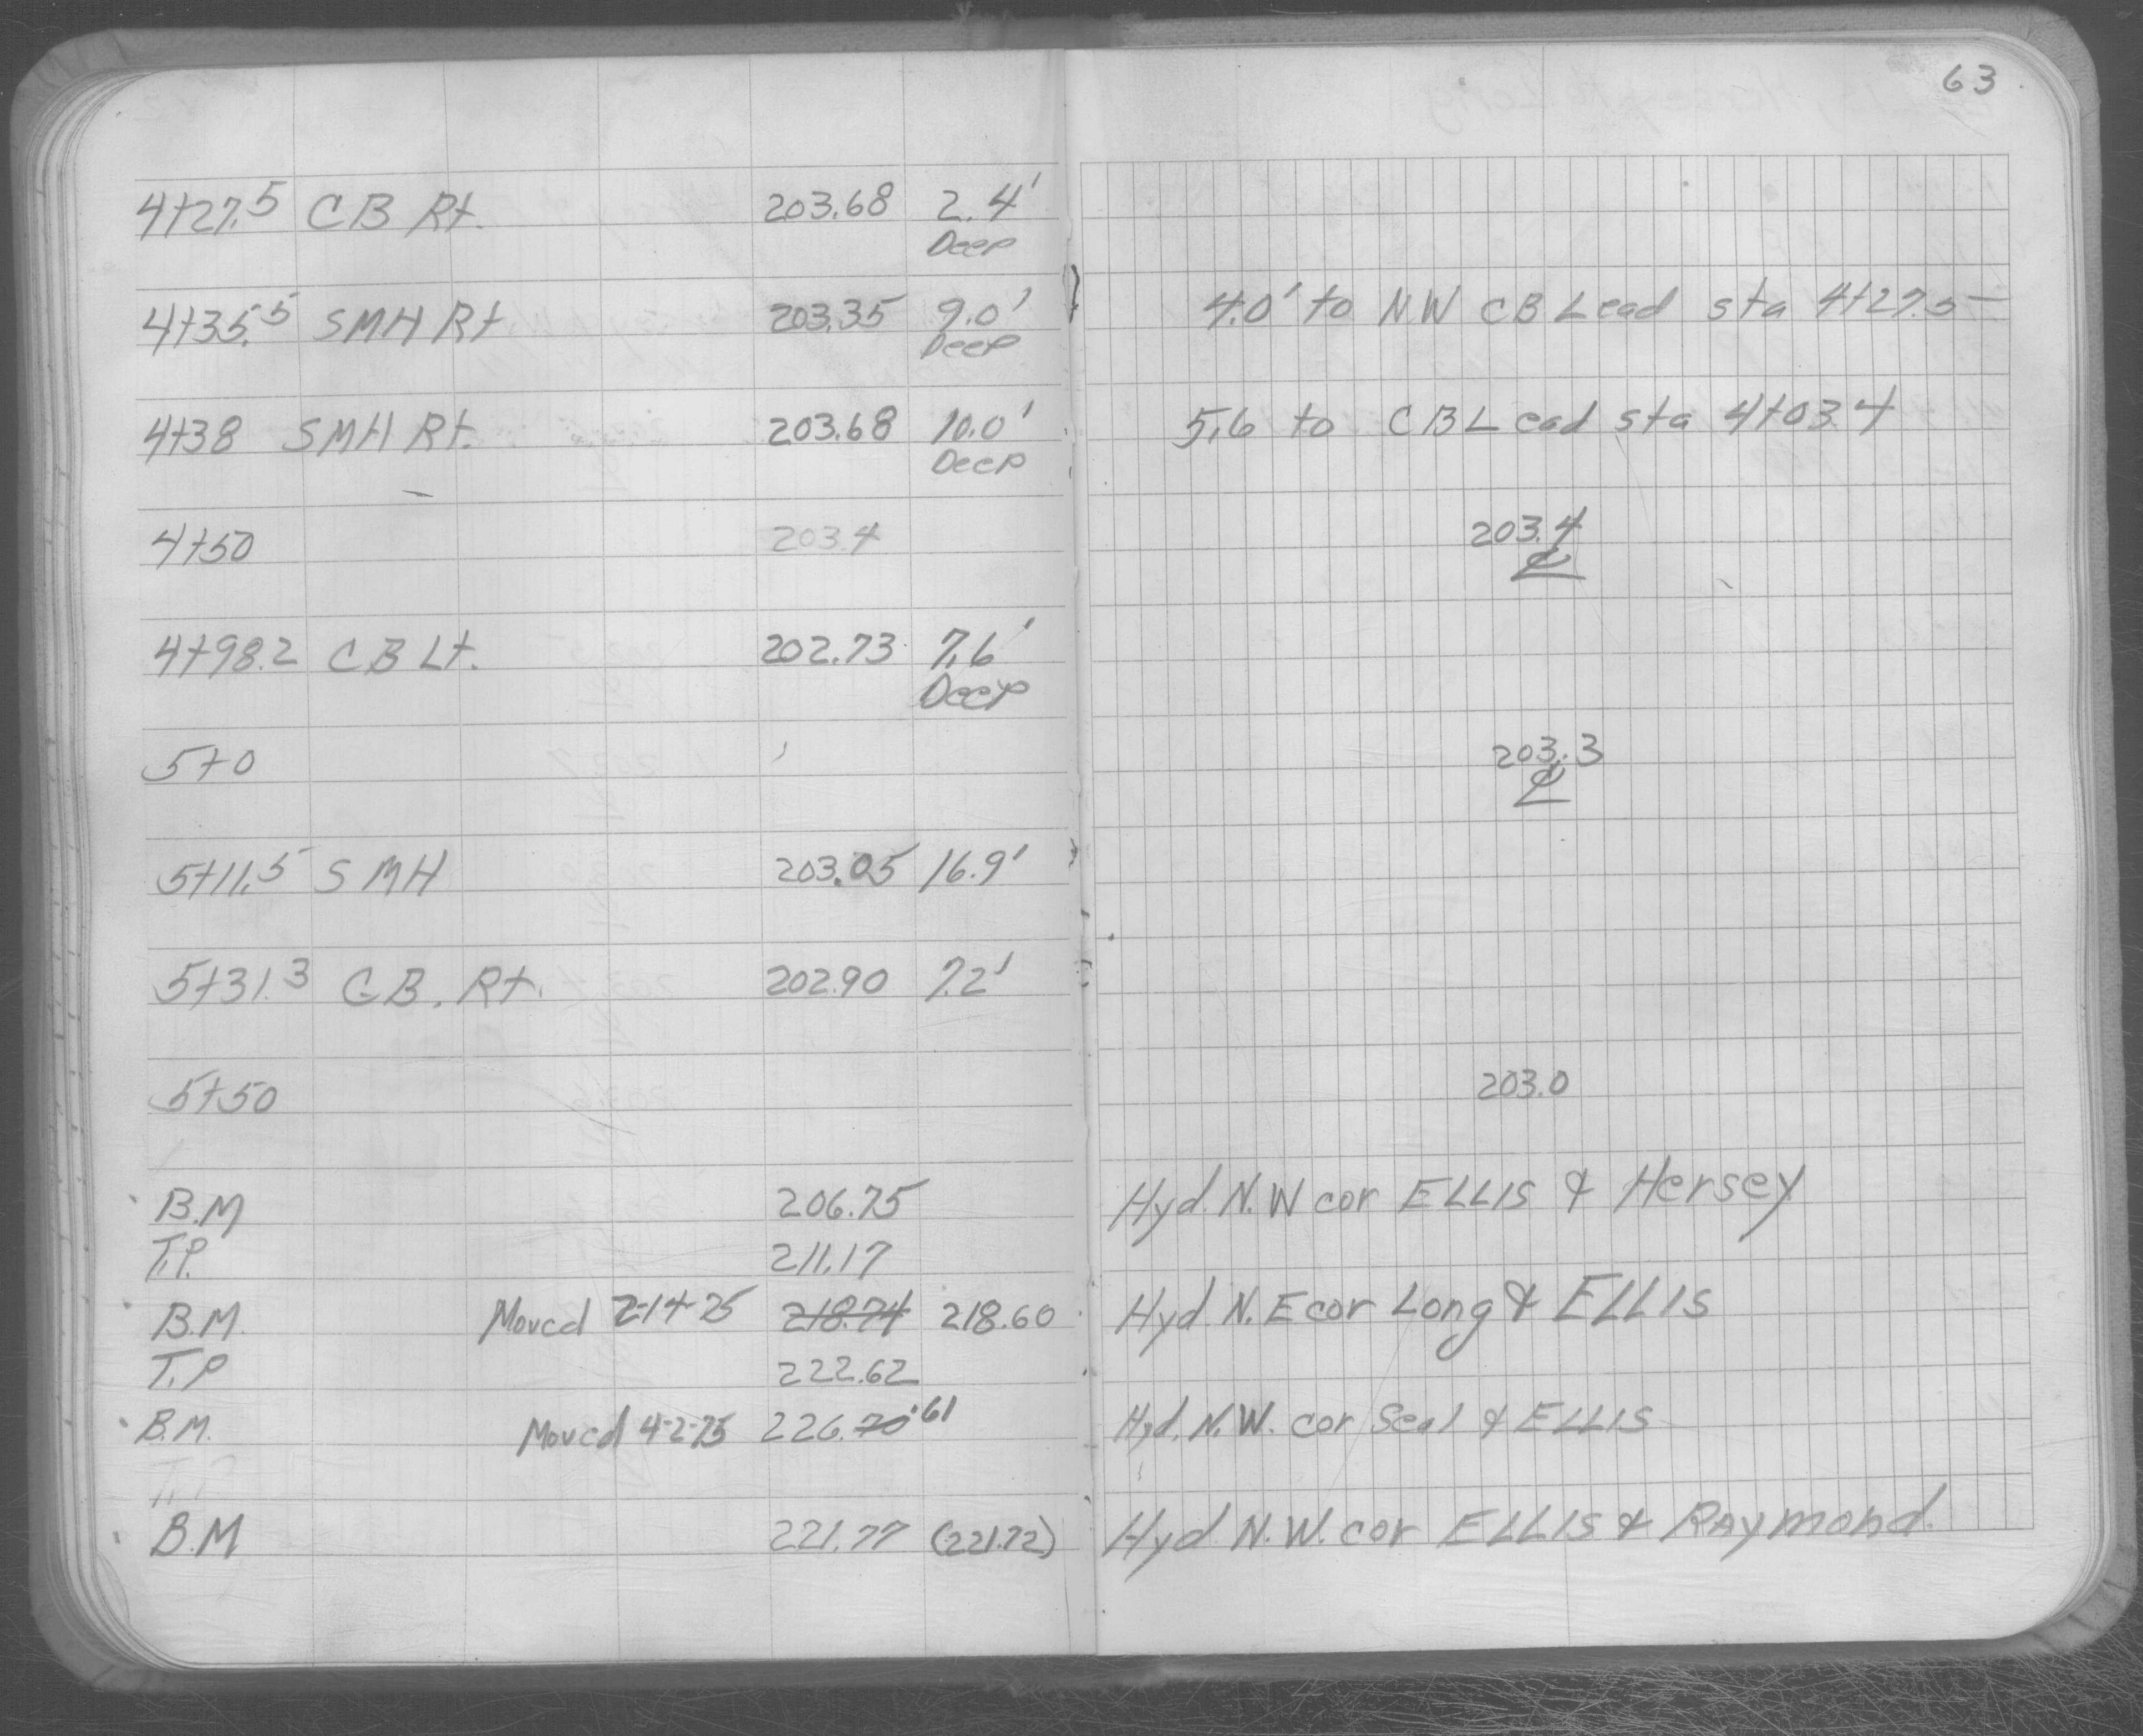 63
4+27.5 CB Rt. 203.68 2.4'
Deep
4+35.5 SMH Rt 203.35 9.0' 4.0' to N.W CB Lead sta 4+27.5
Deep
4+38 SMH Rt. 203.68 10.0' 5.6 to CB Lead sta 4+03.4
Deep
4+50 203.4 203.4
℄
4+98.2 CB Lt. 202.73 7.6'
Deep
5+0 203.3
℄
5+11.5 SMH 203.05 16.9'
5+31.3 C.B. Rt. 202.90 7.2'
5+50 203.0
B.M 206.75 Hyd. N.W cor ELLIS & Hersey
T.P. 211.17
B.M. Moved 2-14-25 218.74 218.60 Hyd N.E cor Long & ELLIS
T.P 222.62
B.M. Moved 4-2-75 226.70 .61 Hyd. N.W. cor Seal & ELLIS
T.P
B.M 221.77 (221.72) Hyd N.W. cor ELLIS & RAymond.